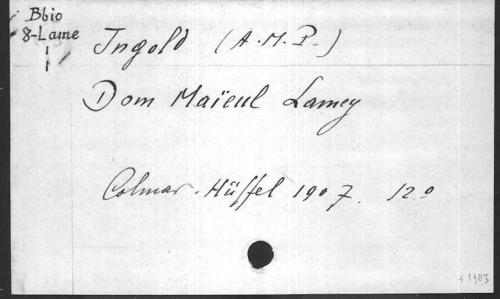 Bbio
8-Lame
1
Ingold (A.M.P.)
Dom Maïeul Lamey
Colmar. Hüffel 1907. 12o
+1903